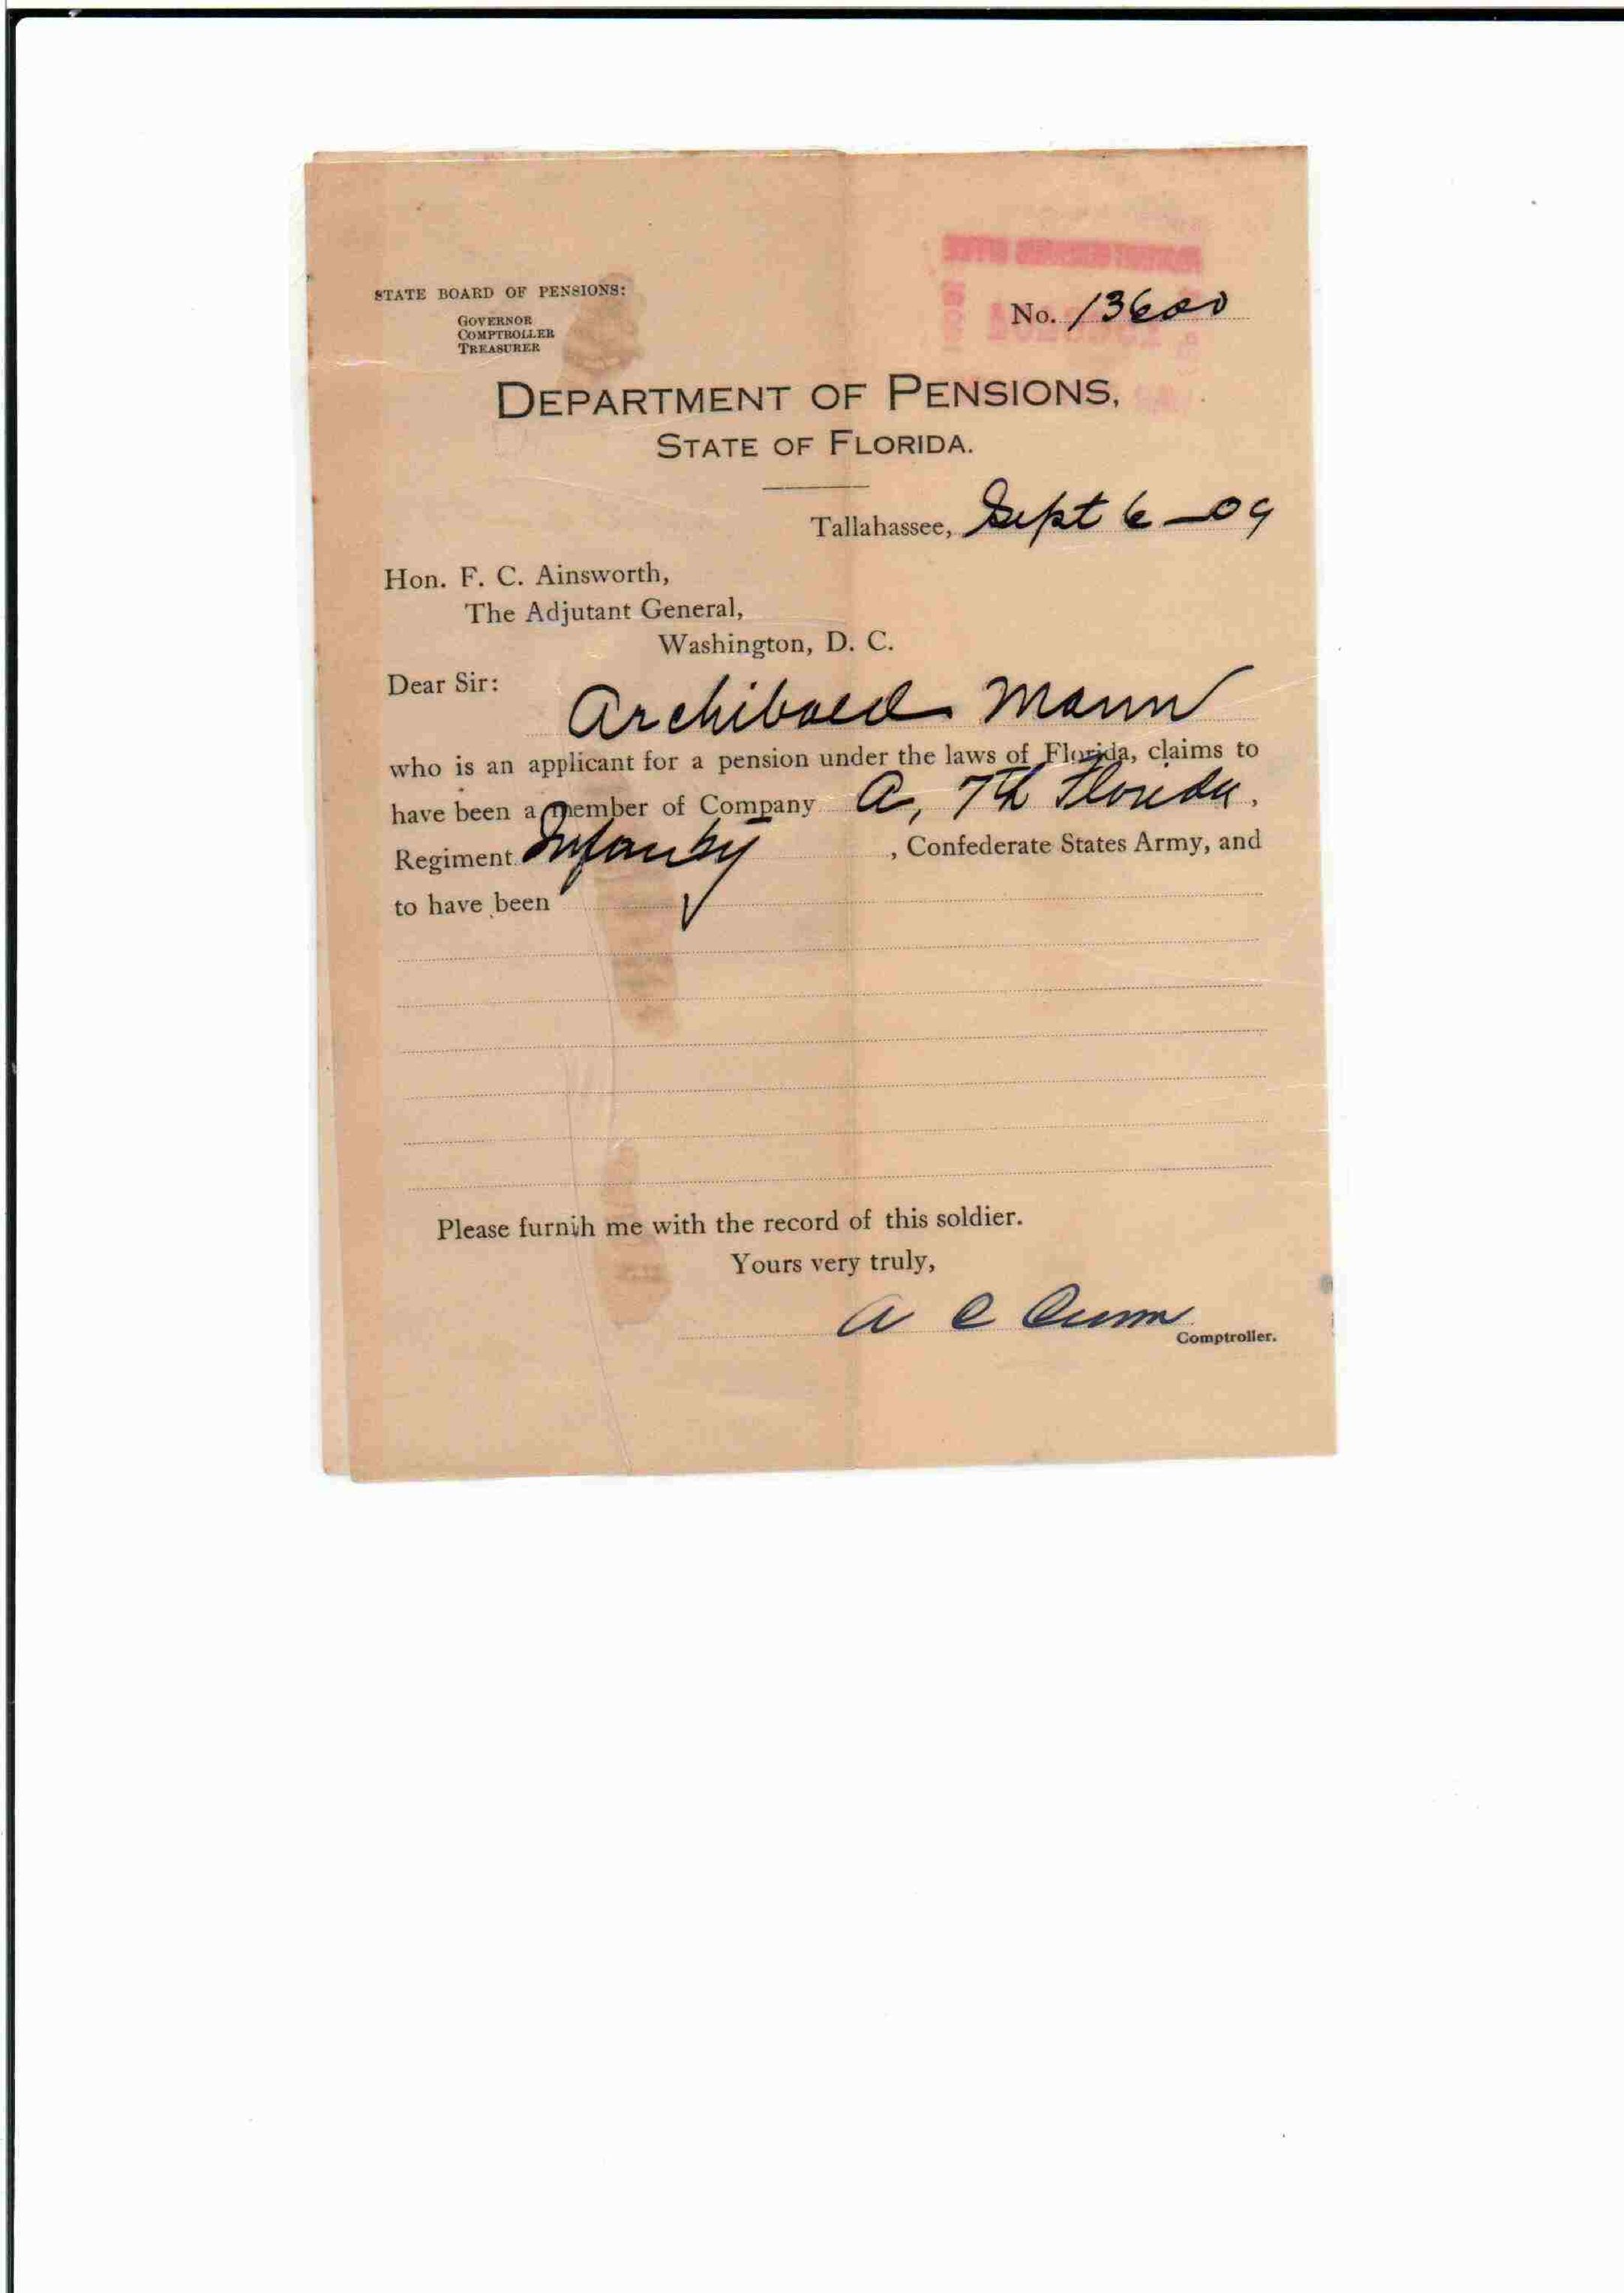 STATE BOARD OF PENSIONS:
GOVERNOR
COMPTROLLER
TREASURER
No. 13600
DEPARTMENT OF PENSIONS,
STATE OF FLORIDA.
Tallahassee, Sept 6-09
Hon. F. C. Ainsworth,
The Adjutant General,
Washington, D. C.
Dear Sir:
Archibald Mann
who is an applicant for a pension under the laws of Florida, claims to
have been a member of Company A, 7th Florida,
Regiment Infantry, Confederate States Army, and
to have been
Please furnih me with the record of this soldier.
Yours very truly,
A C Croom
Comptroller.